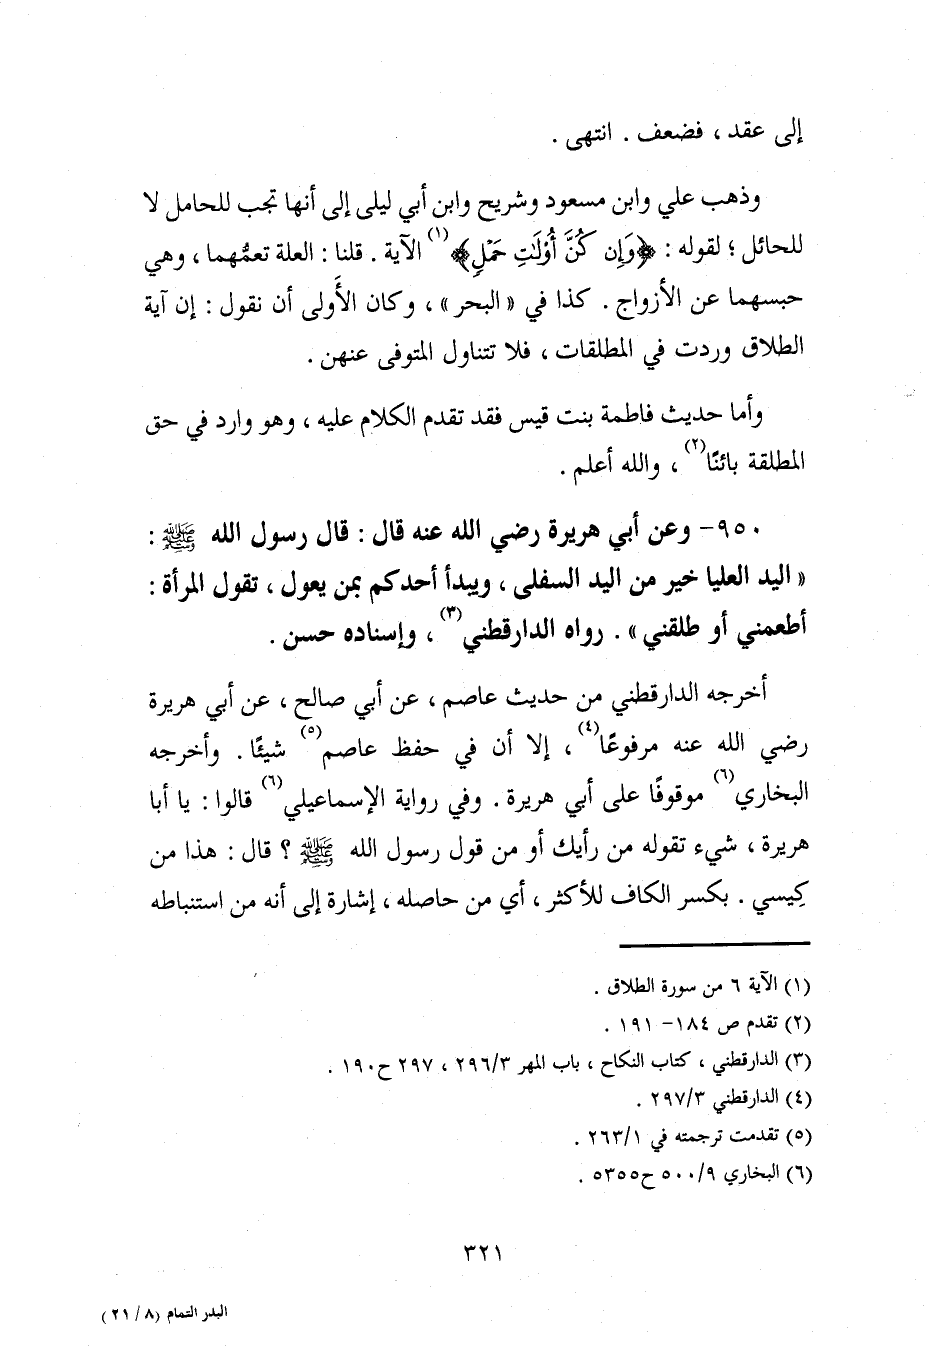 إلى عقد ، فضعف . انتهى .
وذهب علي وابن مسعود وشريح وابن أبي ليلى إلى أنها تجب للحامل لا
للحائل ؛ لقوله : ﴿وَإِن كُنَّ أُوْلَٰتِ حَمْلٍ﴾(١) الآية . قلنا : العلة تعمُّهما ، وهي
حبسهما عن الأزواج . كذا في « البحر » ، وكان الأَولى أن نقول : إن آية
الطلاق وردت في المطلقات ، فلا تتناول المتوفى عنهن .
وأما حديث فاطمة بنت قيس فقد تقدم الكلام عليه ، وهو وارد في حق
المطلقة بائنًا(٢) ، والله أعلم .
٩٥٠- وعن أبي هريرة رضي الله عنه قال : قال رسول الله ﷺ :
« اليد العليا خير من اليد السفلى ، ويبدأ أحدكم بمن يعول ، تقول المرأة :
أطعمني أو طلقني » . رواه الدارقطني(٣) ، وإسناده حسن .
أخرجه الدارقطني من حديث عاصم ، عن أبي صالح ، عن أبي هريرة
رضي الله عنه مرفوعًا(٤) ، إلا أن في حفظ عاصم(٥) شيئًا . وأخرجه
البخاري(٦) موقوفًا على أبي هريرة . وفي رواية الإسماعيلي(٦) قالوا : يا أبا
هريرة ، شيء تقوله من رأيك أو من قول رسول الله ﷺ ؟ قال : هذا من
كِيسي . بكسر الكاف للأكثر ، أي من حاصله ، إشارة إلى أنه من استنباطه
(١) الآية ٦ من سورة الطلاق .
(٢) تقدم ص ١٨٤- ١٩١ .
(٣) الدارقطني ، كتاب النكاح ، باب المهر ٢٩٦/٣ ، ٢٩٧ ح١٩٠ .
(٤) الدارقطني ٢٩٧/٣ .
(٥) تقدمت ترجمته في ٢٦٣/١ .
(٦) البخاري ٥٠٠/٩ ح٥٣٥٥ .
٣٢١
البدر التمام (٨ / ٢١)